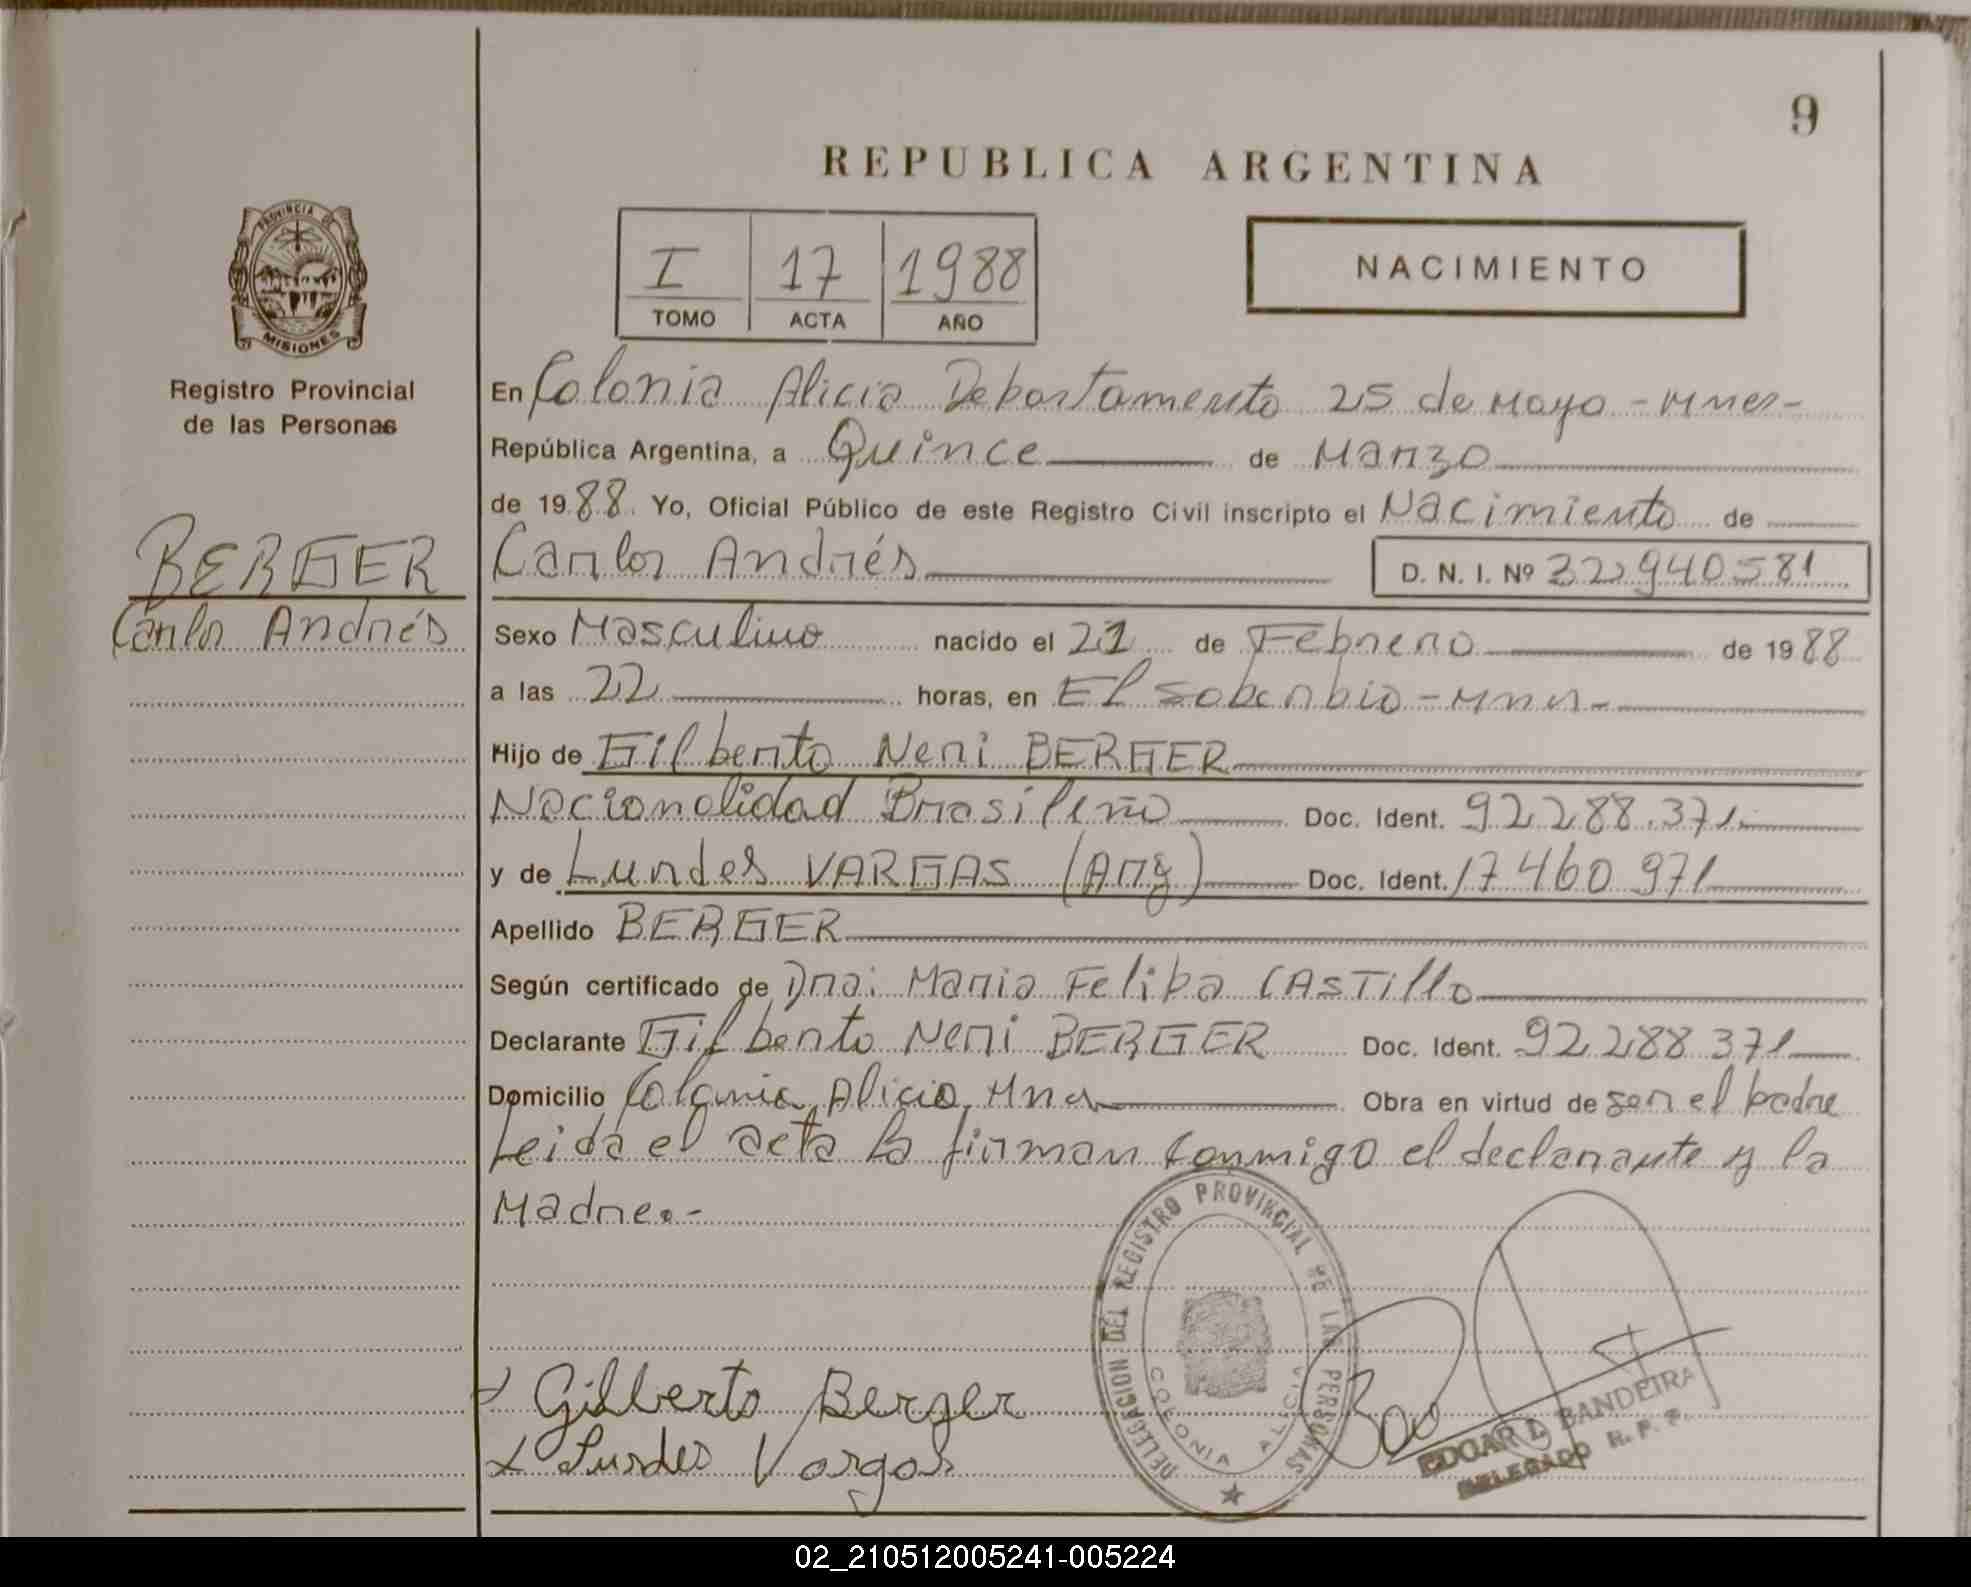 9
REPUBLICA ARGENTINA
PROVINCIA DE
MISIONES
I 17 1988
TOMO ACTA AÑO
NACIMIENTO
Registro Provincial
de las Personas
BERGER
Carlos Andrés
En Colonia Alicia Departamento 25 de Mayo - Mnes-
República Argentina, a Quince de Marzo
de 1988. Yo, Oficial Público de este Registro Civil inscripto el Nacimiento de
Carlos Andrés D. N. I. Nº 32940581
Sexo Masculino nacido el 21 de Febrero de 1988
a las 22 horas, en El Soberbio - Mnes-
Hijo de Gilberto Neri BERGER
Nacionalidad Brasileño Doc. Ident. 92.288.371
y de Lurdes VARGAS (Arg) Doc. Ident. 17460971
Apellido BERGER
Según certificado de Dra: Maria Felipa CASTillo
Declarante Gilberto Neri BERGER Doc. Ident. 92288371
Domicilio Colonia Alicia, Mnes Obra en virtud de ser el padre
Leida el acta la firman conmigo el declarante y la
Madre.-
DELEGACION DEL REGISTRO PROVINCIAL DE LAS PERSONAS
COLONIA ALICIA
Gilberto Berger
Lurdes Vargas
EDGAR L. BANDEIRA
DELEGADO R. P. P.
02_210512005241-005224